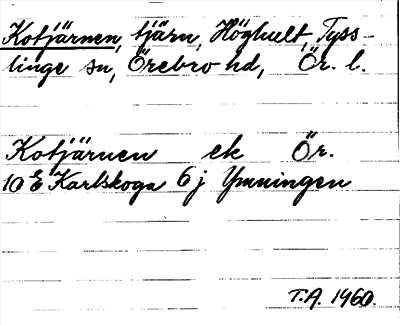 Kotjärnen, tjärn, Höghult, Tyss-
linge sn, Örebro hd, Ör. l.
Kotjärnen ek Ör.
10 E Karlskoga 6 j Ymningen
T.A. 1960.